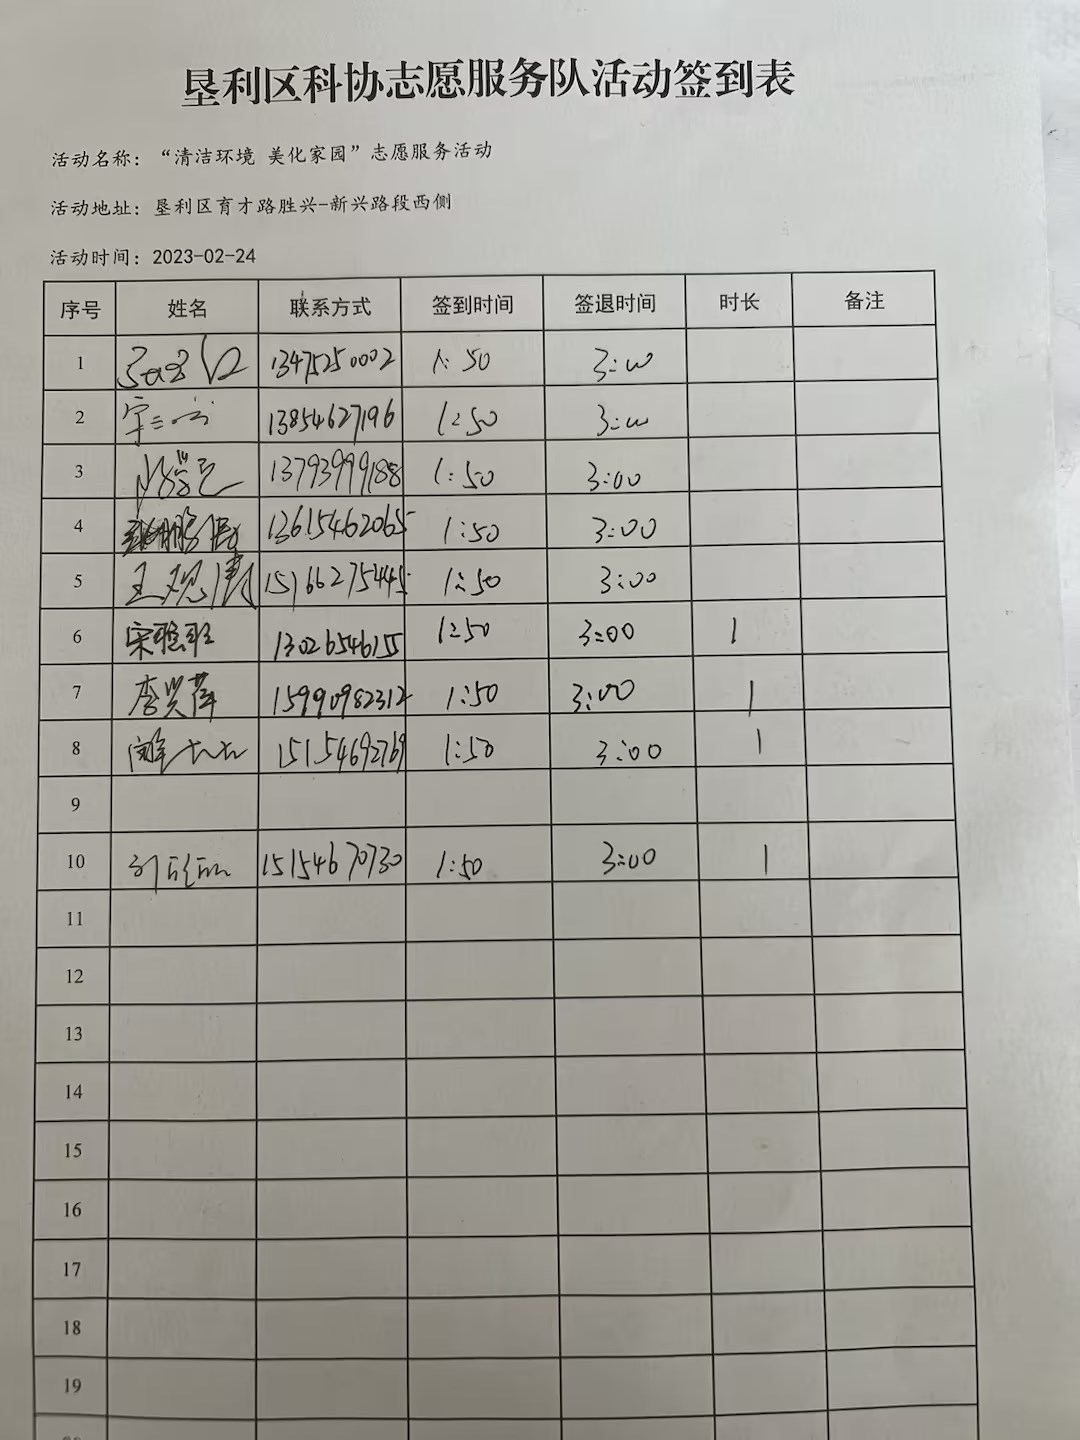 垦利区科协志愿服务队活动签到表
活动名称：“清洁环境 美化家园”志愿服务活动
活动地址：垦利区育才路胜兴-新兴路段西侧
活动时间：2023-02-24
序号 姓名 联系方式 签到时间 签退时间 时长 备注
1 13475250002 1:50 3:00
2 13854627196 1:50 3:00
3 13793999188 1:50 3:00
4 13615462065 1:50 3:00
5 15166275445 1:50 3:00
6 13026546155 1:50 3:00 1
7 李兴萍 15990982312 1:50 3:00 1
8 15154692769 1:50 3:00 1
9
10 15154670730 1:50 3:00 1
11
12
13
14
15
16
17
18
19